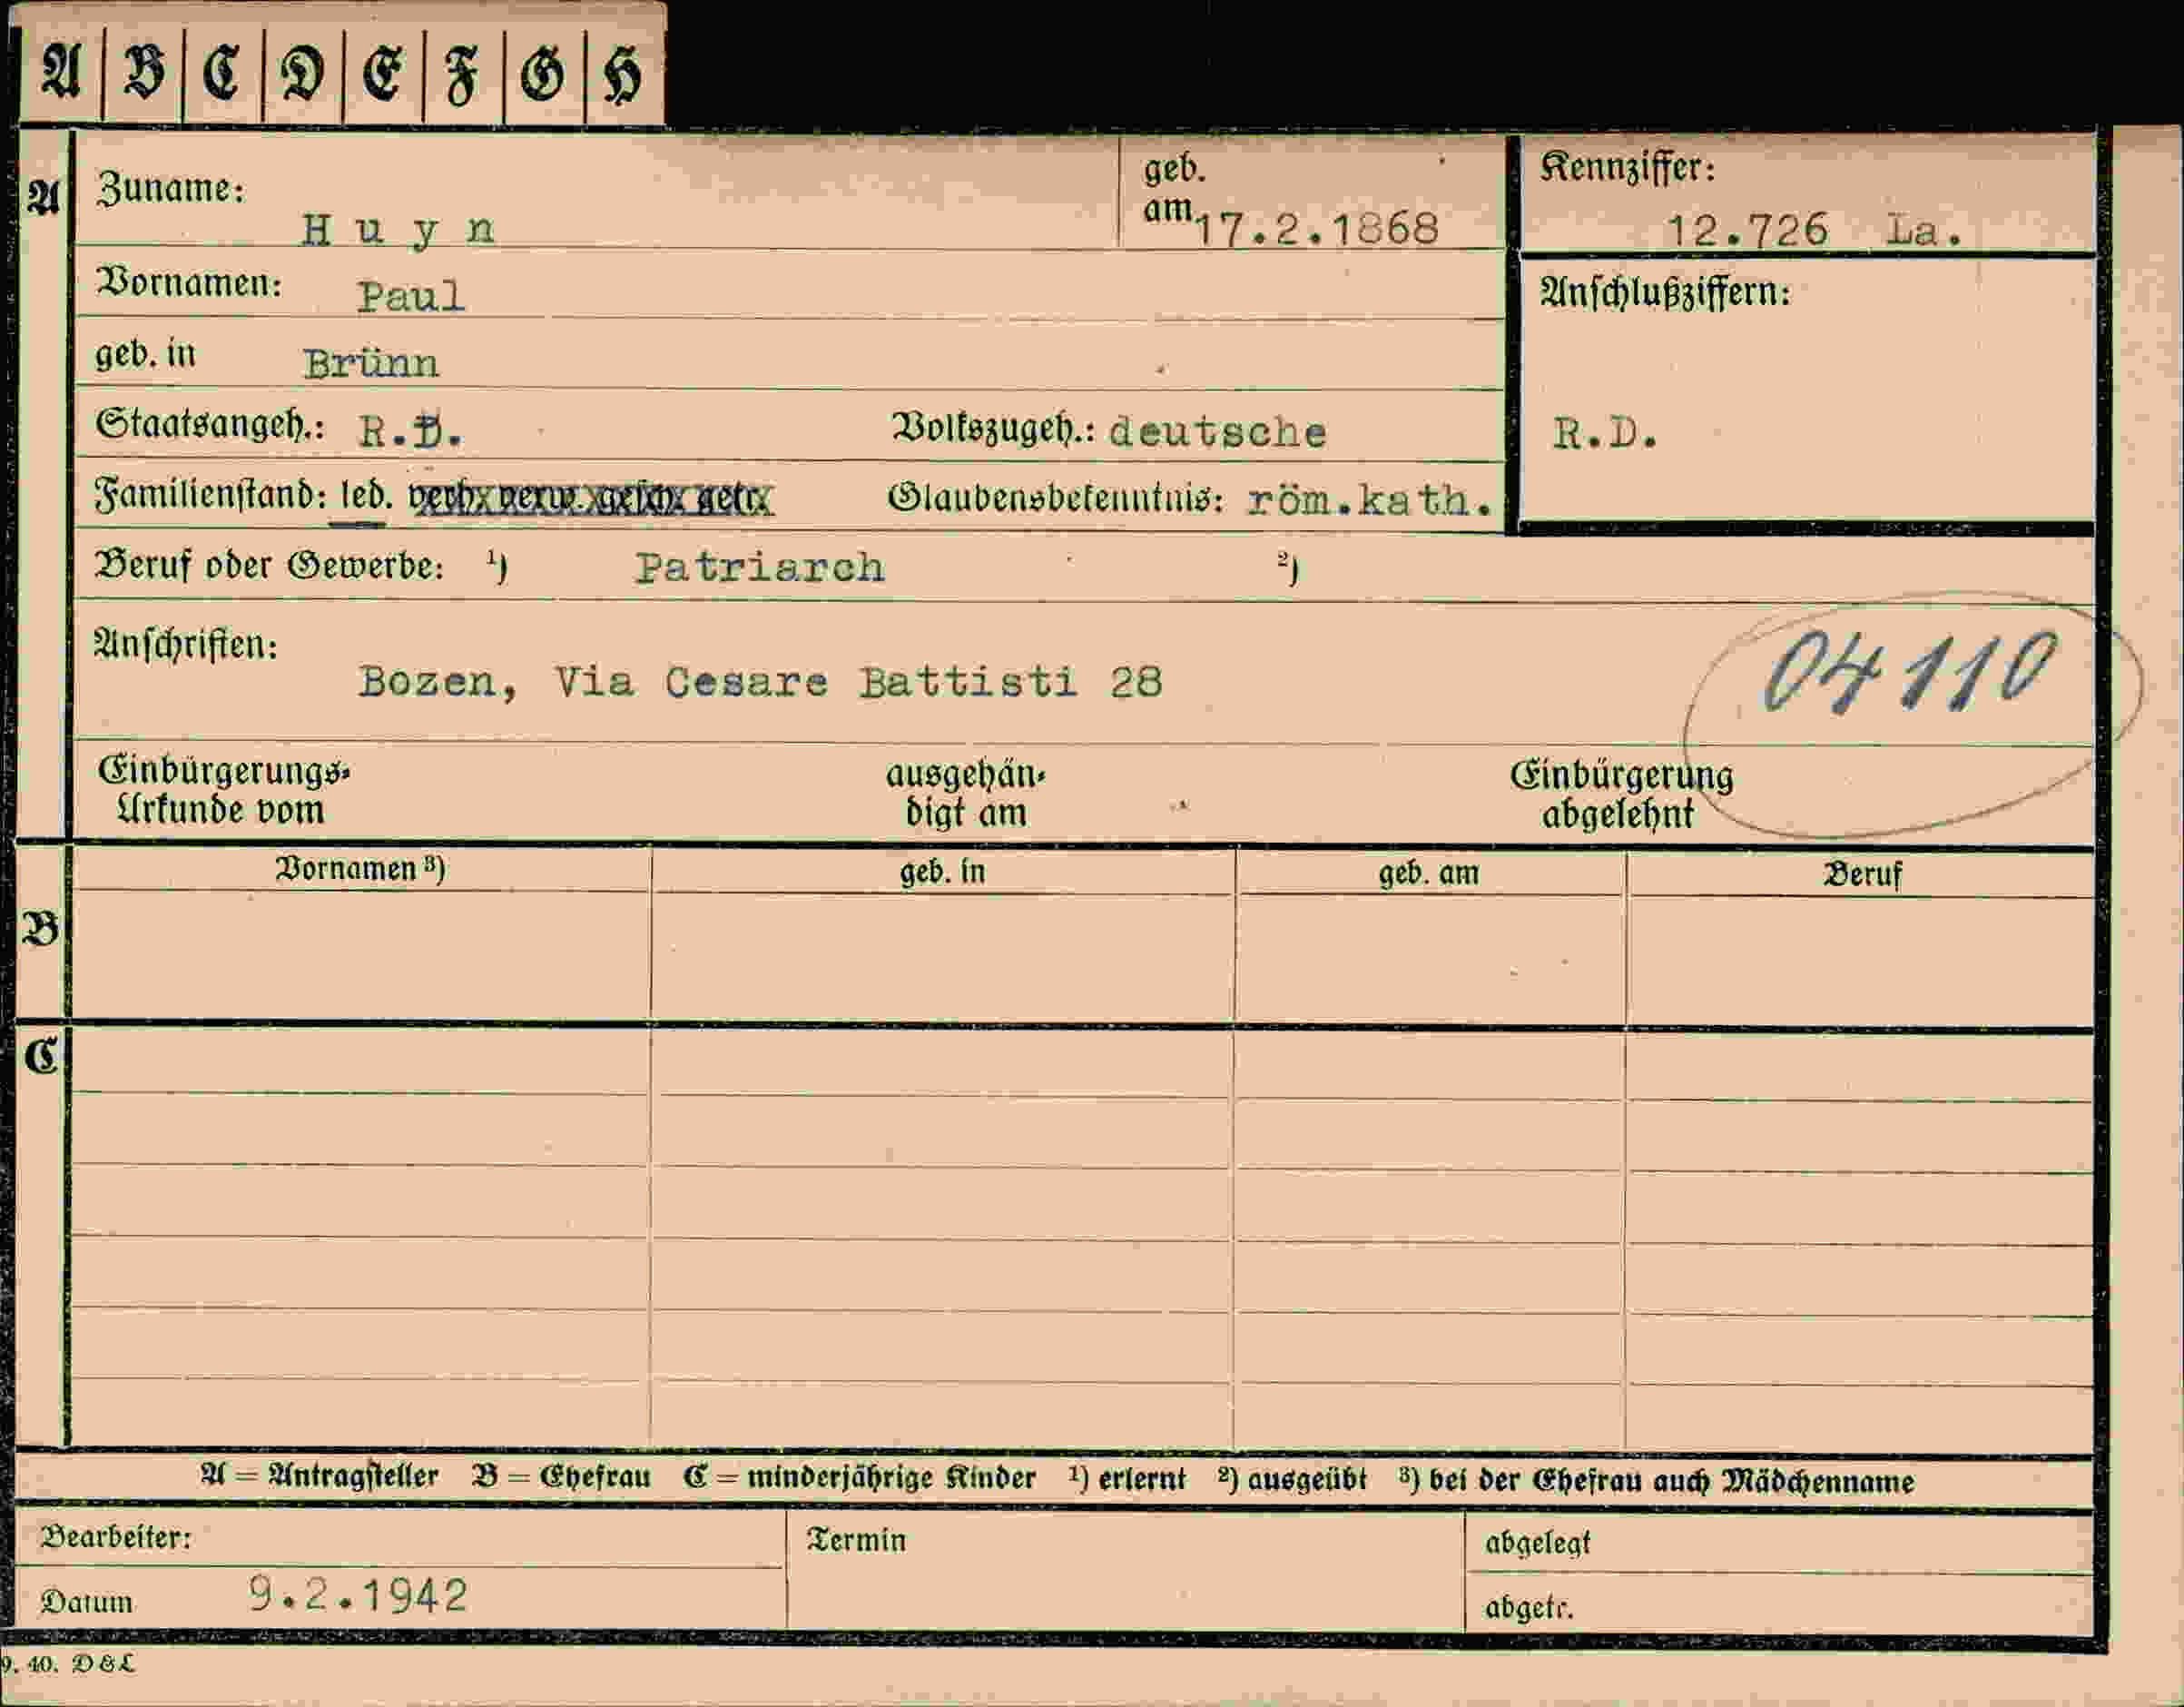 A B C D E F G H
A
Zuname: Huyn
geb. am 17.2.1868
Kennziffer: 12.726 La.
Vornamen: Paul
Anschlußziffern:
geb. in Brünn
Staatsangeh.: R.D. Volkszugeh.: deutsche
R.D.
Familienstand: led. verh. verw. gesch. getr. Glaubensbekenntnis: röm.kath.
Beruf oder Gewerbe: ¹) Patriarch ²)
Anschriften:
Bozen, Via Cesare Battisti 28
04110
Einbürgerungs- ausgehän- Einbürgerung
Urkunde vom digt am abgelehnt
Vornamen ³) geb. in geb. am Beruf
B
C
A = Antragsteller B = Ehefrau C = minderjährige Kinder ¹) erlernt ²) ausgeübt ³) bei der Ehefrau auch Mädchenname
Bearbeiter: Termin abgelegt
Datum 9.2.1942 abgetr.
9. 40. D & L